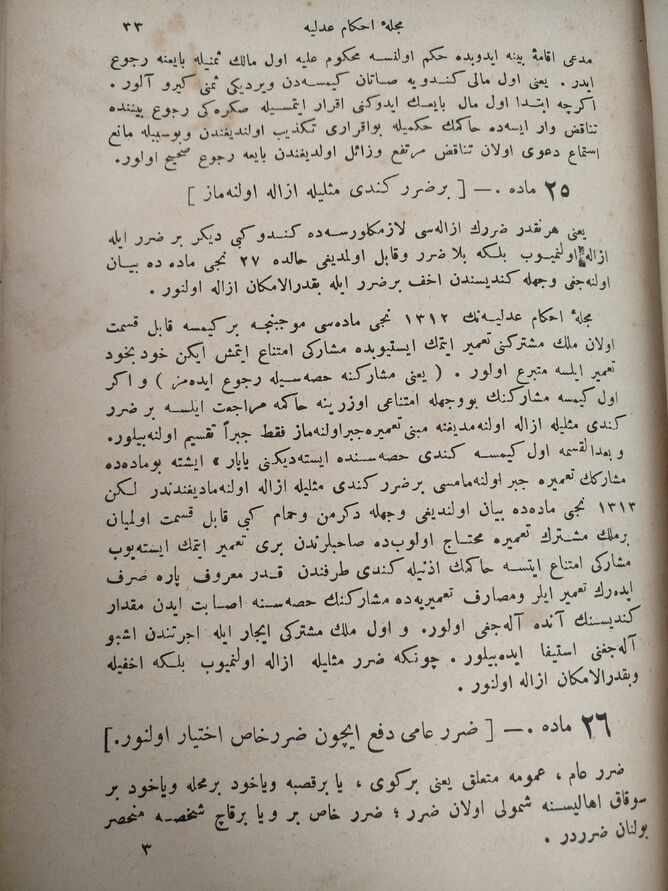 مجلهٔ احكام عدلیه
٣٣
مدعی اقامهٔ بینه ایدوبده حكم اولنسه محكوم علیه اول مالك ثمنیله بایعنه رجوع
ایدر . یعنی اول مالی كندویه صاتان كیمسه‌دن ویردیكی ثمنی كیرو آلور .
اكرچه ابتدا اول مال بایعك ایدوكنی اقرار ایتمسیله صكره‌كی رجوع بیننده
تناقض وار ایسه‌ده حاكمك حكمیله بواقراری تكذیب اولندیغندن وبوسببله مانع
استماع دعوی اولان تناقض مرتفع وزائل اولدیغندن بایعه رجوع صحیح اولور.
٢٥ ماده .— [ برضرر كندی مثلیله ازاله اولنه‌ماز ]
یعنی هرنقدر ضررك ازاله‌سی لازمكلورسه‌ده كندو كبی دیكر بر ضرر ایله
ازاله اولنمیوب بلكه بلا ضرر وقابل اولمدیغی حالده ٢٧ نجی ماده ده بیان
اولنه‌جغی وجهله كندیسندن اخف برضرر ایله بقدرالامكان ازاله اولنور .
مجلهٔ احكام عدلیه‌نك ١٣١٢ نجی ماده‌سی موجبنجه بركیمسه قابل قسمت
اولان ملك مشتركنی تعمیر ایتمك ایستیوبده مشاركی امتناع ایتمش ایكن خود بخود
تعمیر ایلسه متبرع اولور . ( یعنی مشاركنه حصه‌سیله رجوع ایده‌مز ) و اكر
اول كیمسه مشاركنك بووجهله امتناعی اوزرینه حاكمه مراجعت ایلسه بر ضرر
كندی مثلیله ازاله اولنه‌مدیغنه مبنی تعمیره‌جبراولنه‌ماز فقط جبراً تقسیم اولنه‌بیلور.
و بعدالقسمه اول كیمسه كندی حصه‌سنده ایسته‌دیكنی یاپار » ایشته بوماده‌ده
مشاركك تعمیره جبر اولنه‌مامسی برضرر كندی مثلیله ازاله اولنه‌مادیغندندر لكن
١٣١٣ نجی ماده‌ده بیان اولندیغی وجهله دكرمن وحمام كبی قابل قسمت اولمیان
برملك مشترك تعمیره محتاج اولوب‌ده صاحبلرندن بری تعمیر ایتمك ایسته‌یوب
مشاركی امتناع ایتسه حاكمك اذنیله كندی طرفندن قدر معروف پاره صرف
ایده‌رك تعمیر ایلر ومصارف تعمیریه‌ده مشاركنك حصه‌سنه اصابت ایدن مقدار
كندیسنك آنده آله‌جغی اولور. و اول ملك مشتركی ایجار ایله اجرتندن اشبو
آله‌جغنی استیفا ایده‌بیلور . چونكه ضرر مثلیله ازاله اولنمیوب بلكه اخفیله
وبقدرالامكان ازاله اولنور .
٢٦ ماده .— [ ضرر عامی دفع ایچون ضررخاص اختیار اولنور.]
ضرر عام ، عمومه متعلق یعنی بركوی ، یا برقصبه ویاخود برمحله ویاخود بر
سوقاق اهالیسنه شمولی اولان ضرر ؛ ضرر خاص بر و یا برقاچ شخصه منحصر
بولنان ضرردر .
٣